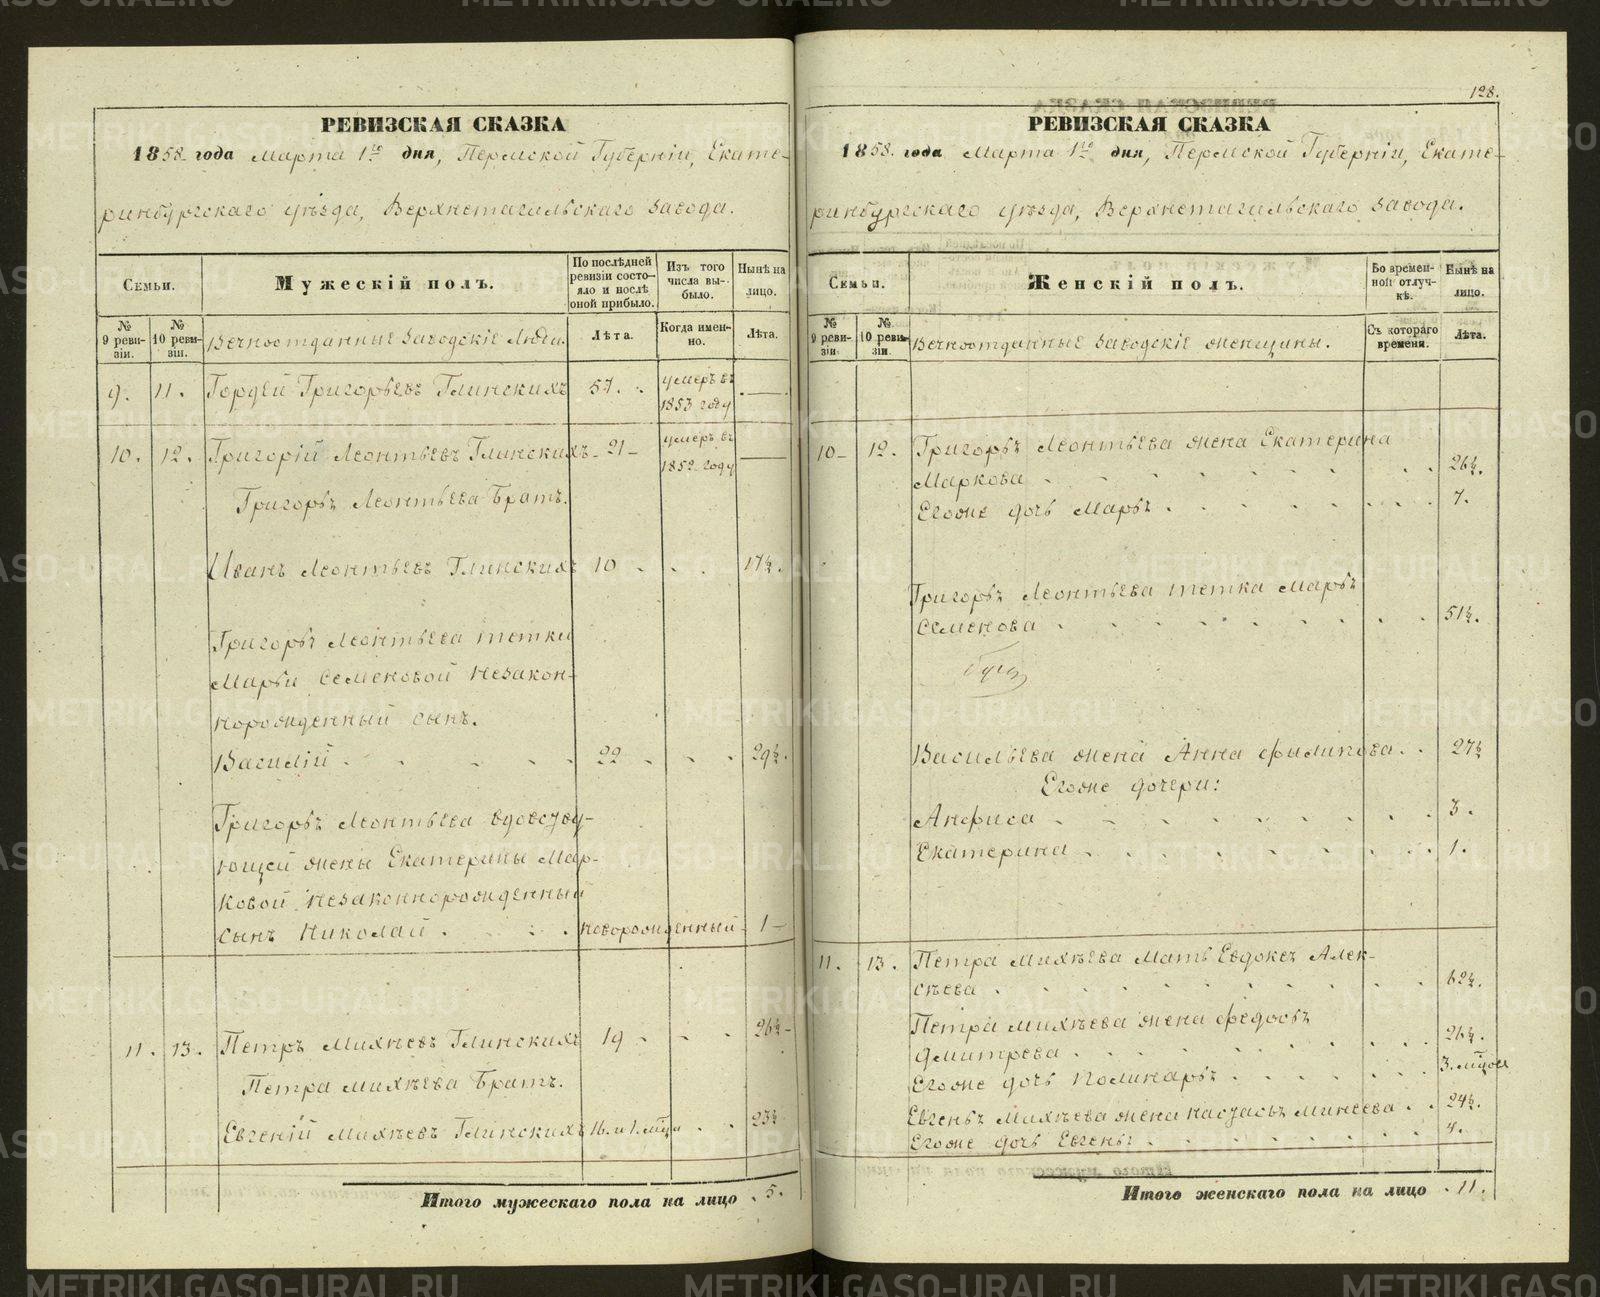 РЕВИЗСКАЯ СКАЗКА
1858. года Марта 1го дня, Пермской Губерніи, Екате-
ринбургскаго уѣзда, Верхнетагильскаго завода.
Семьи.
Мужескій полъ.
По послѣдней ревизіи состо-яло и послѣ оной прибыло.
Изъ того числа вы-было.
Нынѣ на лицо.
№ 9 реви-зіи.
№ 10 реви-зіи.
Вечноотданные заводскіе Люди.
Лѣта.
Когда имен-но.
Лѣта.
9. 11. Гордей Григорьевъ Глинскихъ 57. умеръ въ 1853 году
10. 12. Григорій Леонтьевъ Глинскихъ 21 умеръ въ 1852 году
Григорья Леонтьева Братъ.
Иванъ Леонтьевъ Глинскихъ 10 17½.
Григорья Леонтьева тетки
Марьи Семеновой незакон-
норожденный сынъ.
Василій 22 29½.
Григорья Леонтьева вдовству-
ющей жены Екатерины Мар-
ковой незаконнорожденный
сынъ Николай новорожденный 1
11. 13. Петръ Михѣевъ Глинскихъ 19 26½
Петра Михѣева Братъ.
Евгеній Михѣевъ Глинскихъ 16. и 1. мѣца 23½
Итого мужескаго пола на лицо 5.
128.
РЕВИЗСКАЯ СКАЗКА
1858. года Марта 1го дня, Пермской Губерніи, Екате-
ринбургскаго уѣзда, Верхнетагильскаго завода.
Семьи.
Женскій полъ.
Во времен-ной отлуч-кѣ.
Нынѣ на лицо.
№ 9 реви-зіи.
№ 10 реви-зіи.
Вечноотданные заводскіе женщины.
Съ котораго времени.
Лѣта.
10 12. Григорья Леонтьева жена Екатерина
Маркова 26½.
Егоже дочь Марья 7.
Григорья Леонтьева тетка Марья
Семенова 51½.
Васильева жена Анна Филипова 27½
Егоже дочери:
Анфиса 3.
Екатерина 1.
11. 13. Петра Михѣева Мать Евдокея Алек-
сѣева 62½.
Петра Михѣева жена Федосья
Дмитрева 26½.
Егоже дочь Полинарья 3. мѣцов
Евгенья Михѣева жена Настасья Минеева 24½.
Егоже дочь Евгенья 4.
Итого женскаго пола на лицо 11.
METRIKI.GASO-URAL.RU